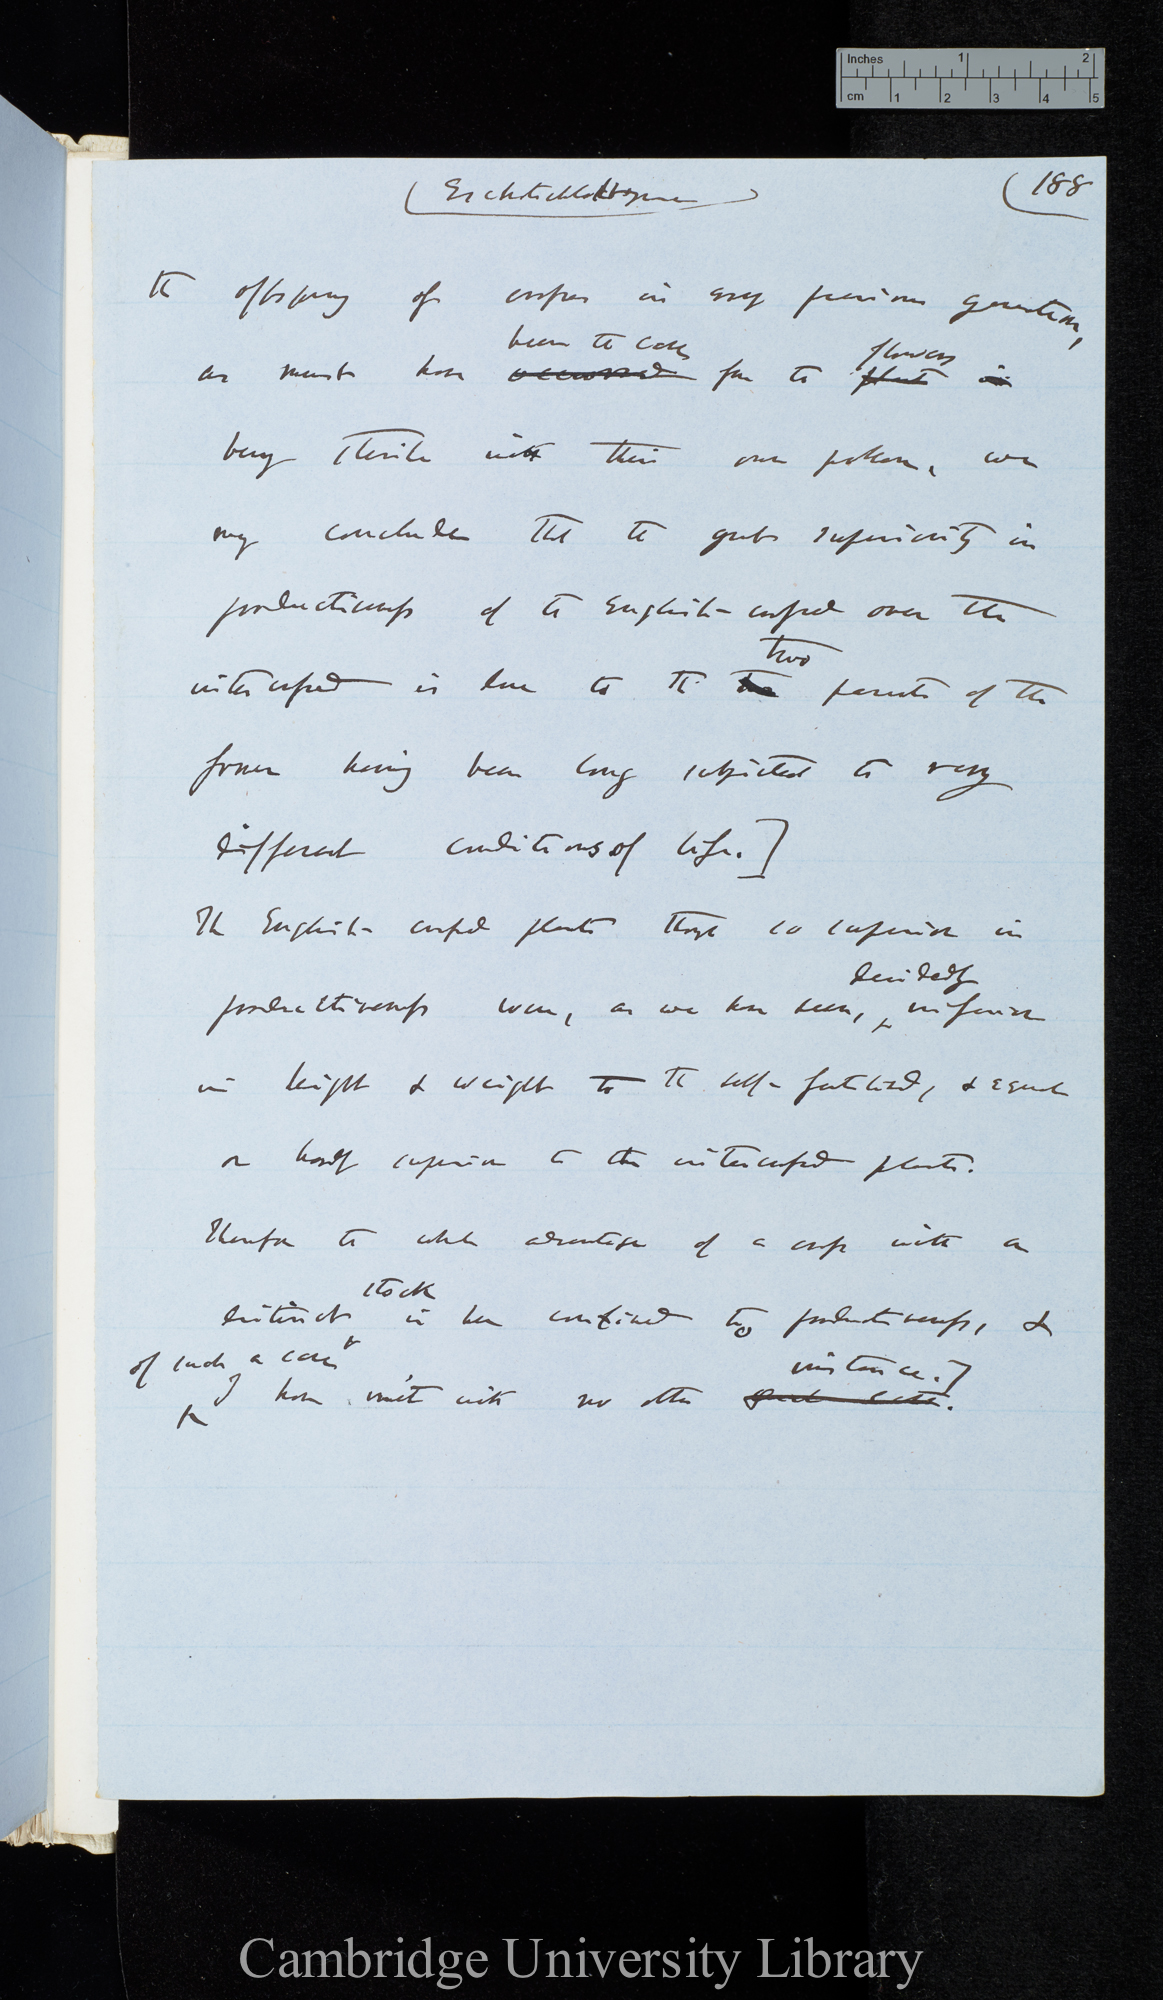 Inches 1 2
cm 1 2 3 4 5
(Eschscholtzia)
(188
the offspring of crosses in every previous generation,
been the case flowers
as must have occurred from the plants in
being sterile with their own pollen, we
may conclude that the great superiority in
productiveness of the English-crossed over the
two
intercrossed is due to the the parents of the
former having been long subjected to very
different conditions of life.]
The English-crossed plants though so superior in
decidedly
productiveness were, as we have seen, inferior
in height & weight to the self-fertilised, & equal
or hardly superior to the intercrossed plants.
Therefore the whole advantage of a cross with a
stock
distinct is here confined to productiveness, &
of such a case instance.]
I have met with no other
Cambridge University Library